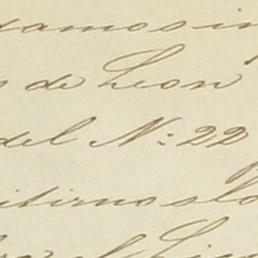 damos in
s de Leon
del N.: 22
itirnoslo